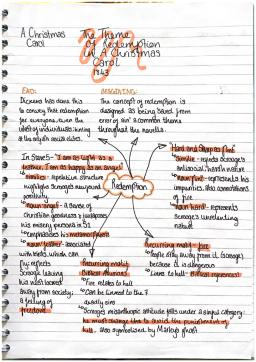 A Christmas
Carol
The Theme
Of Redemption
In A Christmas
Carol
1843
END:
Dickens has done this
to convey that redemption
for everyone, even the
worst of individuals
BEGINNING:
The concept of redemption is
designed as being saved from
error or sin a common theme
throughout the novella.
"Hard and Sharp as flint"
simile - reflects Scrooge's
antisocial, harsh nature
noun flint - represents his
impurities, also connotations
of fire
noun hard - represents
Scrooge's unrelenting
nature
In Stave 5 - "I am as light as a
feather, I am as happy as an angel"
similes - repetitive structure
highlights Scrooge's newfound
positivity
noun angel - a sense of
Christian goodness & juxtaposes
his misery persona in S1
Emphasises his metamorphosis
noun feather - associated
with birds, which can
fly, reflects
Scrooge leaving
his
away from society;
a feeling of
freedom
Redemption
Recurring motif
Biblical Allusions
Fire relates to hell
Can be linked to the 7
deadly sins
Scrooge's misanthropic attitude falls under a sinful category
he must change also to avoid the punishment of
hell. Also symbolised by Marley's ghost
Recurring motif fire
People stay away from it, Scrooge
because it is dangerous
Links to hell - Biblical